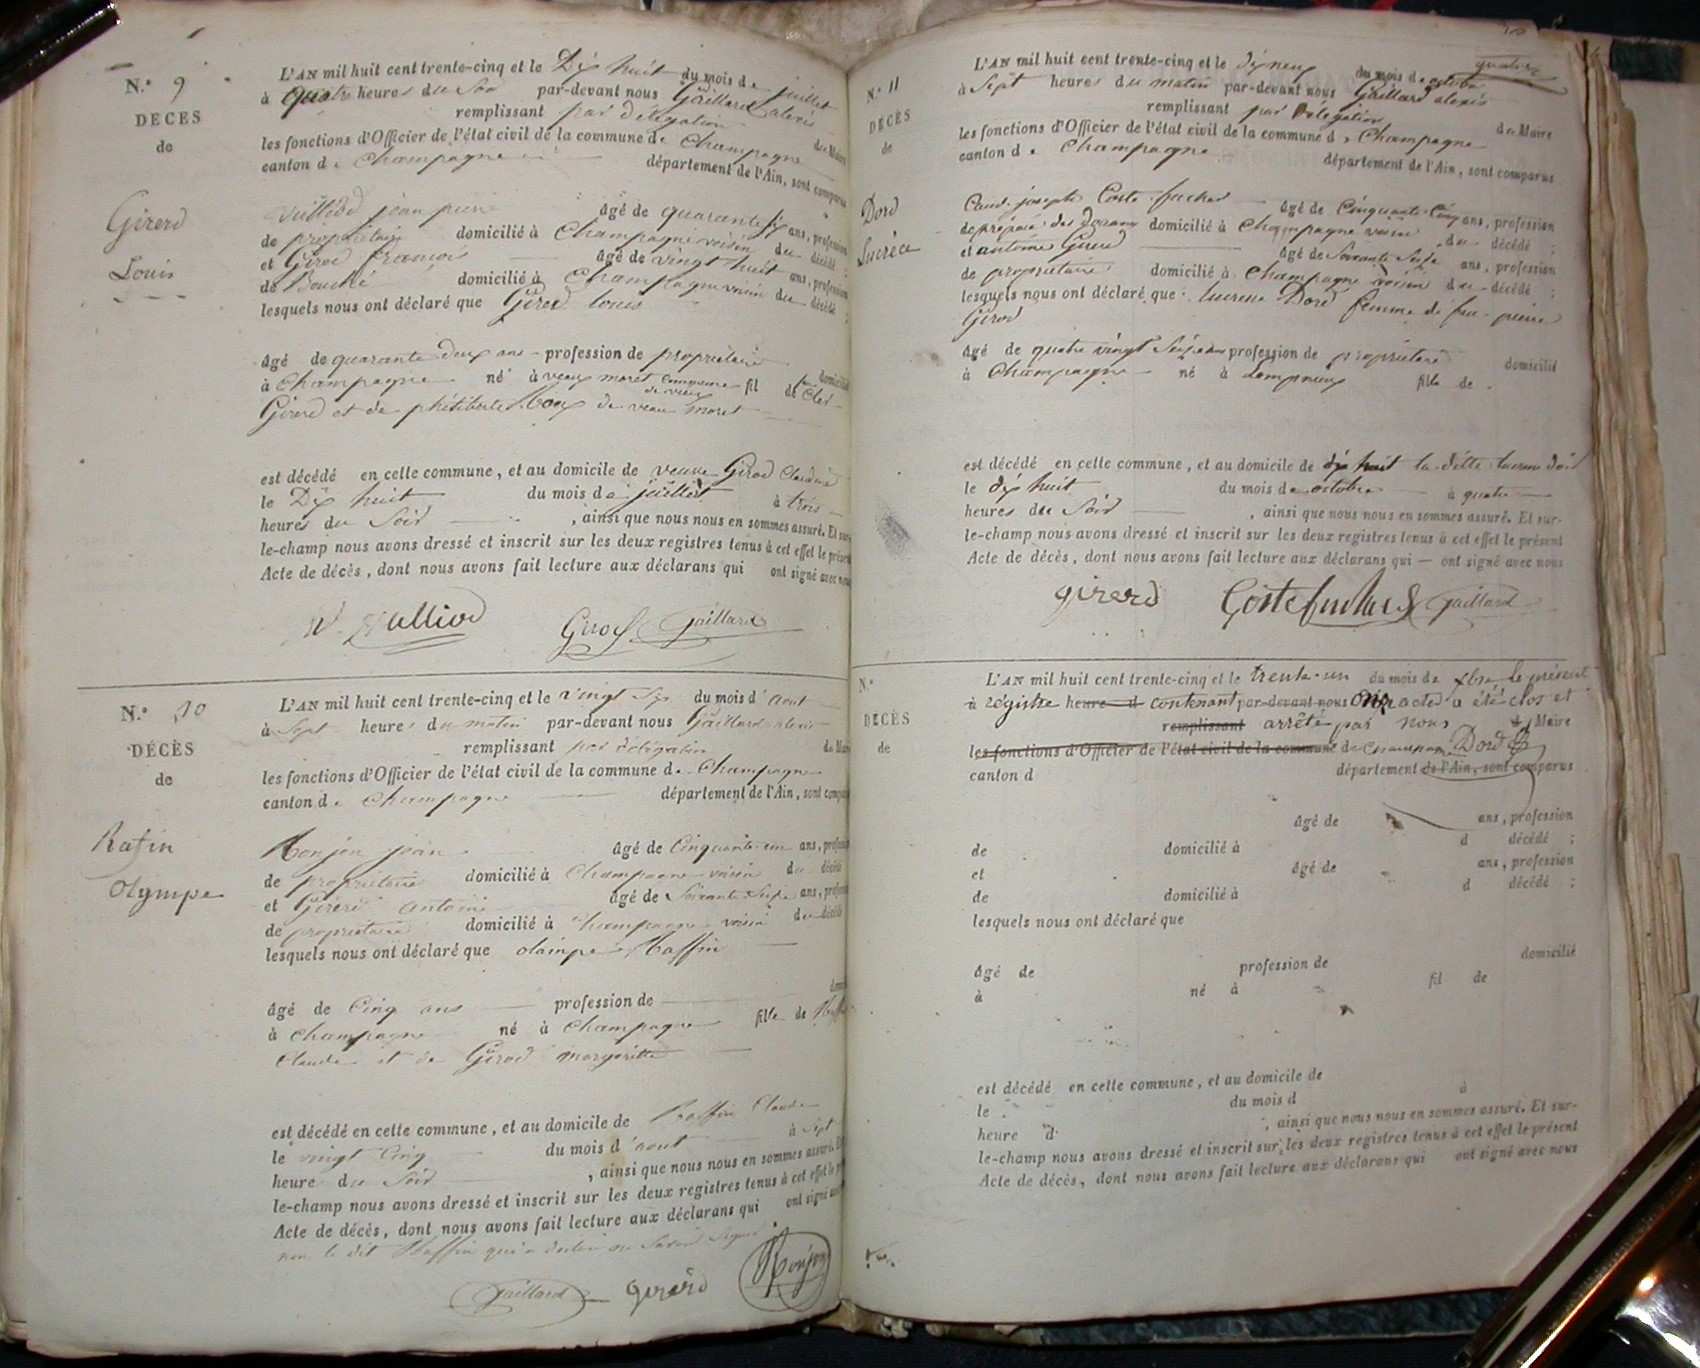 N.° 9
DÉCÈS
de
Girerd
Louis
L'AN mil huit cent trente-cinq et le Dix huit du mois de juillet
à quatre heures du Soir par-devant nous Gaillard alexis
remplissant par délégation du Maire
les fonctions d'Officier de l'état civil de la commune de Champagne
canton de Champagne département de l'Ain, sont comparus
jean pierre âgé de quarante six ans, profession
de propriétaire domicilié à Champagne voisin du décédé ;
et Girod francois âgé de vingt huit ans, profession
de domicilié à Champagne voisin du décédé ;
lesquels nous ont déclaré que Girod louis
âgé de quarante deux ans profession de propriétaire domicilié
à Champagne né à veaux moret commune de vieu fil de
Girerd et de de veau moret
est décédé en cette commune, et au domicile de veuve Girod Claudine
le Dix huit du mois de juillet à trois
heures du Soir , ainsi que nous nous en sommes assuré. Et sur-
le-champ nous avons dressé et inscrit sur les deux registres tenus à cet effet le présent
Acte de décès, dont nous avons fait lecture aux déclarans qui ont signé avec nous
Girod Gaillard
N.° 10
DÉCÈS
de
Rafin
Olympe
L'AN mil huit cent trente-cinq et le vingt six du mois d'aout
à Sept heures du matin par-devant nous Gaillard alexis
remplissant par délégation du Maire
les fonctions d'Officier de l'état civil de la commune de Champagne
canton de Champagne département de l'Ain, sont comparus
Monjon jean âgé de Cinquante-un ans, profession
de propriétaire domicilié à Champagne voisin du décédé
et Girerd antoine âgé de Soixante Seize ans, profession
de propriétaire domicilié à Champagne voisin du décédé
lesquels nous ont déclaré que olimpe Raffin
âgé de Cinq ans profession de
à Champagne né à Champagne fille de Raffin
Claude et de Girod margueritte
est décédé en cette commune, et au domicile de Raffin Claude
le vingt Cinq du mois d'aout à Sept
heures du Soir , ainsi que nous nous en sommes assuré. Et
le-champ nous avons dressé et inscrit sur les deux registres tenus à cet effet le
Acte de décès, dont nous avons fait lecture aux déclarans qui ont signé avec
non le dit Raffin
Gaillard girerd Monjon
quatorze
N.° 11
DÉCÈS
de
Dord
Lucrèce
L'AN mil huit cent trente-cinq et le dix neuf du mois d'octobre
à Sept heures du matin par-devant nous Gaillard alexis
remplissant par délégation du Maire
les fonctions d'Officier de l'état civil de la commune de Champagne
canton de Champagne département de l'Ain, sont comparus
joseph Coste âgé de Cinquante-Cinq ans, profession
de préposé des domicilié à Champagne voisin du décédé ;
et antoine Girerd âgé de Soixante Seize ans, profession
de propriétaire domicilié à Champagne voisin du décédé ;
lesquels nous ont déclaré que Dord femme de feu pierre
Girod
âgé de quatre vingt Seize ans profession de propriétaire domicilié
à Champagne né à Lompnieux fille de
est décédé en cette commune, et au domicile de dix huit la ditte Dord
le dix huit du mois de octobre à quatre
heures du Soir , ainsi que nous nous en sommes assuré. Et sur-
le-champ nous avons dressé et inscrit sur les deux registres tenus à cet effet le présent
Acte de décès, dont nous avons fait lecture aux déclarans qui ont signé avec nous
girerd Gaillard
N.°
DÉCÈS
de
L'AN mil huit cent trente-cinq et le trente-un du mois de xbre le présent
à régistre heure d contenant par-devant nous onze actes a été clos et
remplissant arrêté par nous Maire
les fonctions d'Officier de l'état civil de la commune de Champagne Dord
canton d département de l'Ain, sont comparus
âgé de ans, profession
de domicilié à d décédé ;
et âgé de ans, profession
de domicilié à d décédé ;
lesquels nous ont déclaré que
âgé de profession de domicilié
à né à fil de
est décédé en cette commune, et au domicile de
le du mois d à
heure d , ainsi que nous nous en sommes assuré. Et sur-
le-champ nous avons dressé et inscrit sur les deux registres tenus à cet effet le présent
Acte de décès, dont nous avons fait lecture aux déclarans qui ont signé avec nous